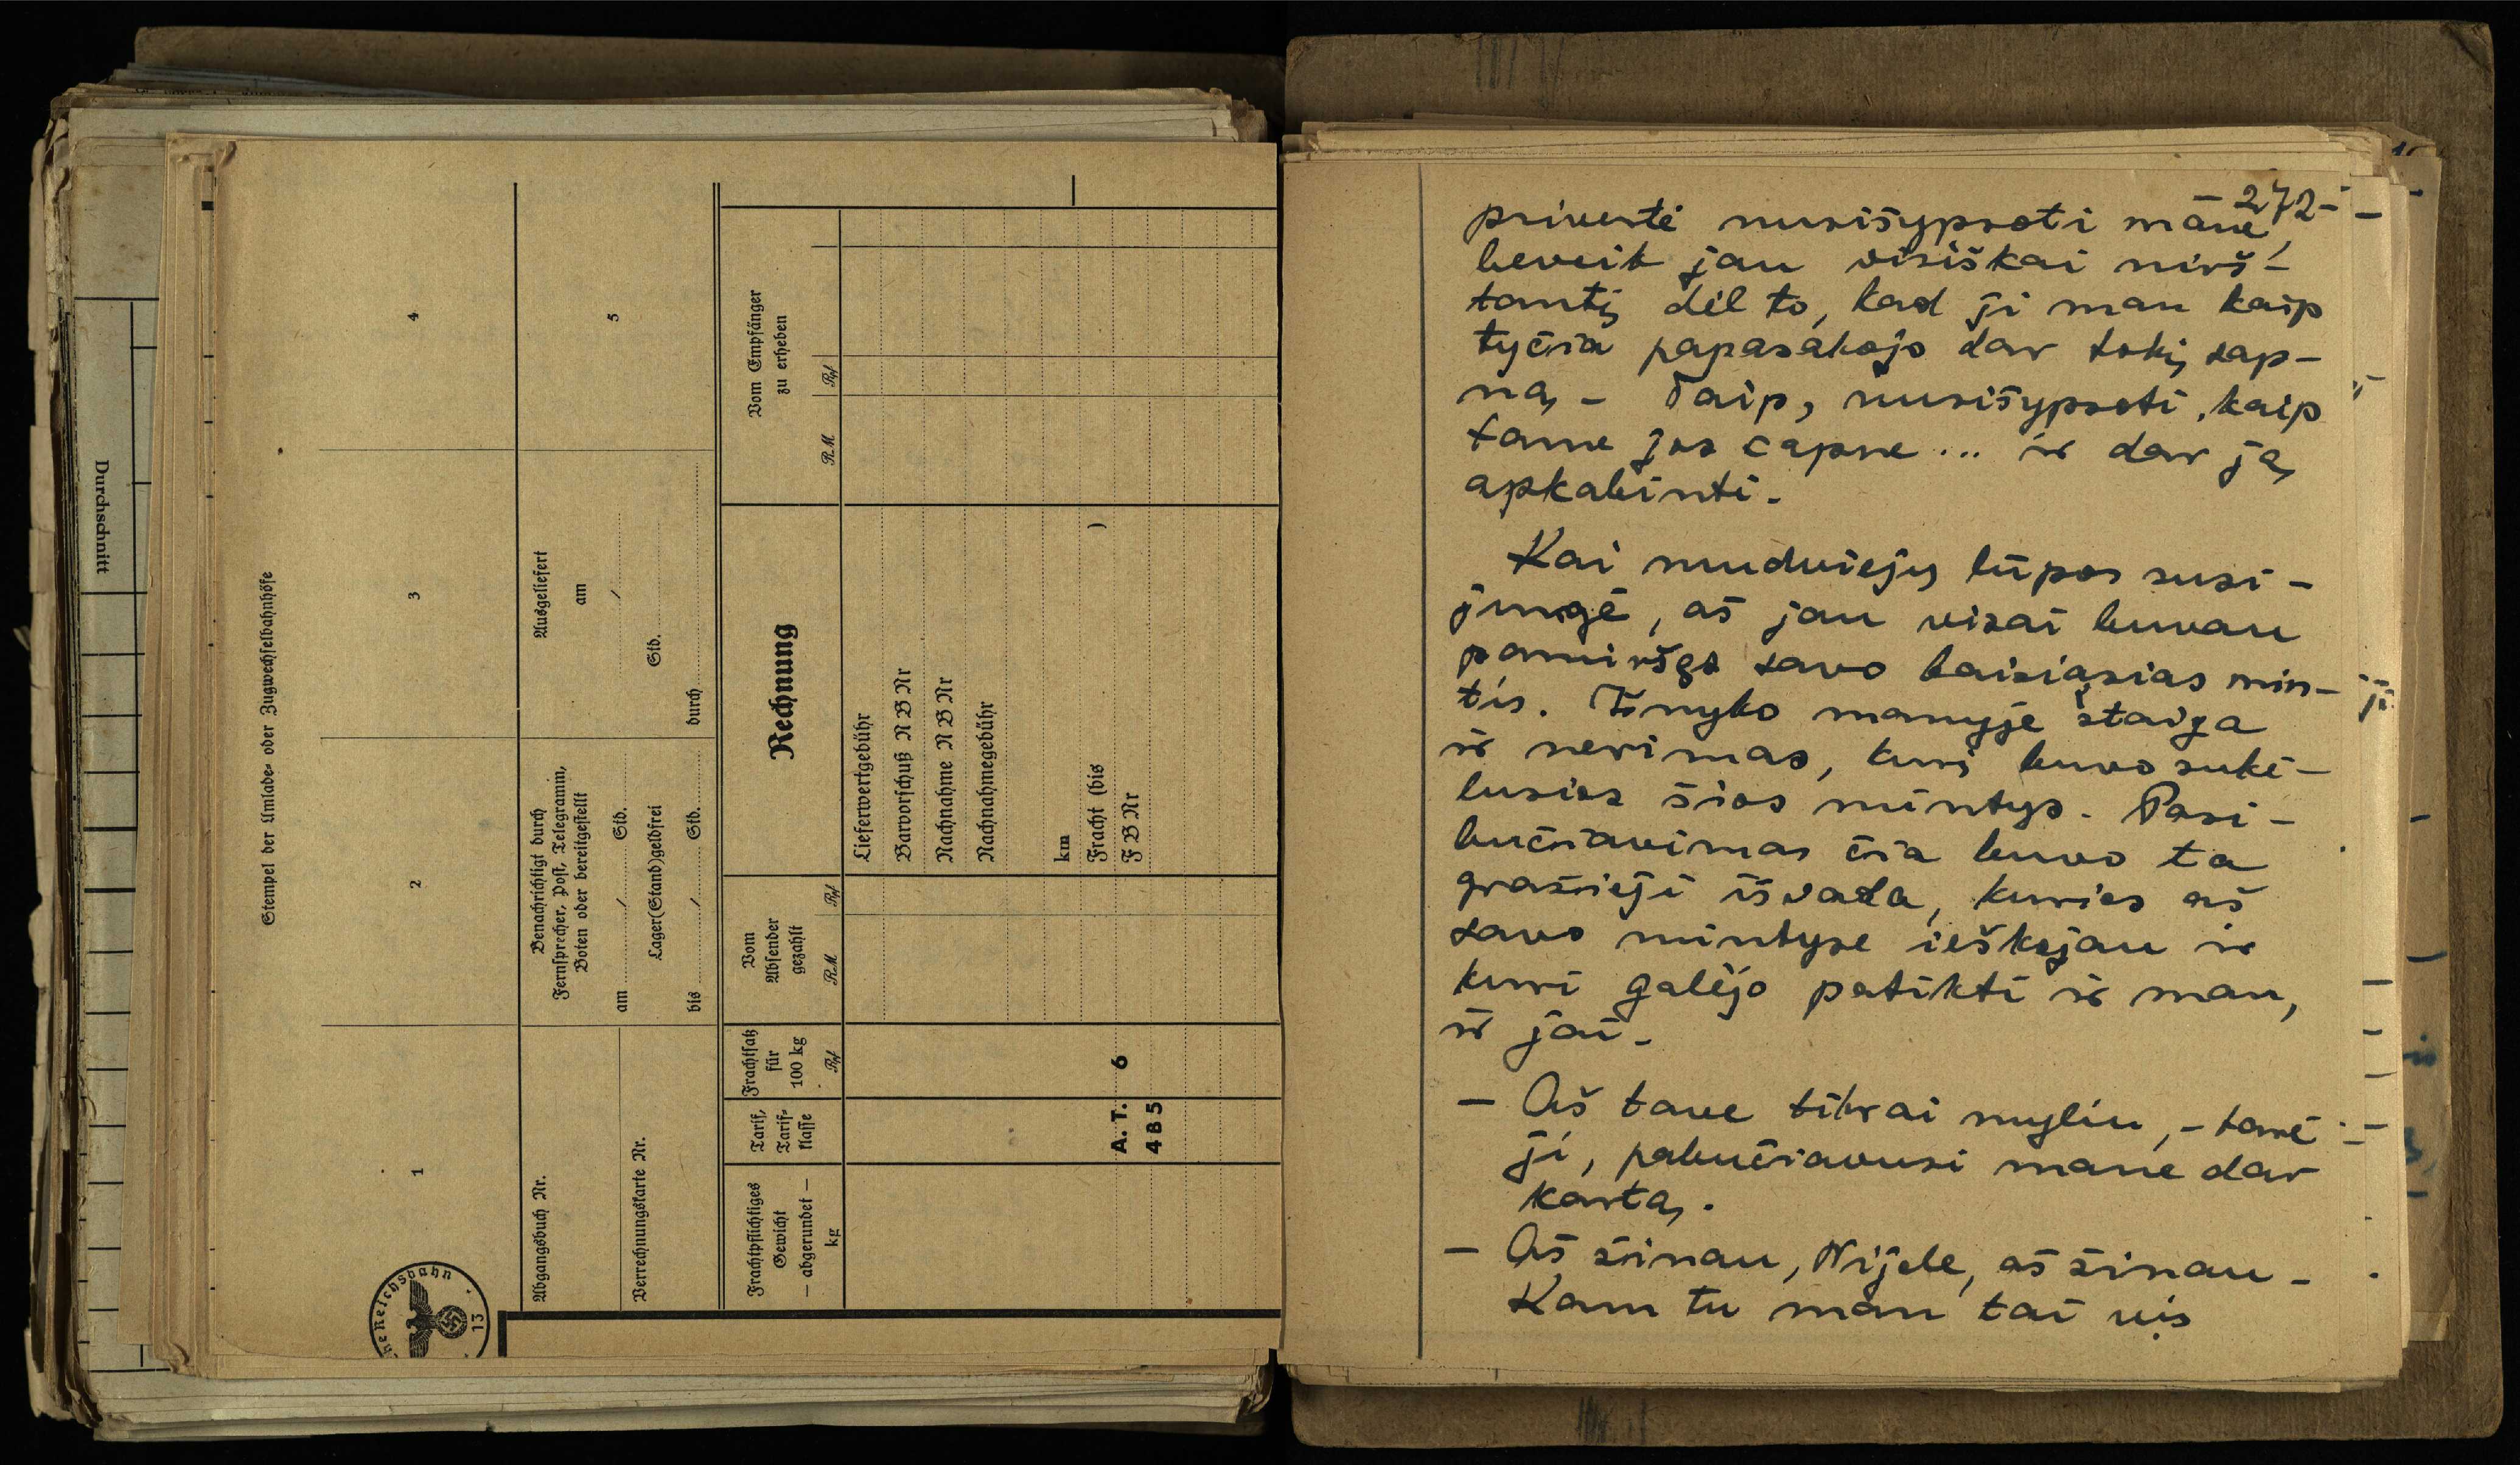 Durchschnitt
Stempel der Umlade- oder Zugwechselbahnhöfe
1
2
3
4
Abgangsbuch Nr.
Verrechnungskarte Nr.
Benachrichtigt durch
Fernsprecher, Post, Telegramm,
Boten oder bereitgestellt
am / Std.
Lager(Stand)geldfrei
bis / Std.
Ausgeliefert
am
/
Std.
durch
5
Frachtpflichtiges
Gewicht
— abgerundet —
kg
Tarif,
Tarif-
klasse
Frachtsatz
für
100 kg
Rpf
Vom
Absender
gezahlt
RM Rpf
Rechnung
Vom Empfänger
zu erheben
RM Rpf
Lieferwertgebühr
Barvorschuß N B Nr
Nachnahme N B Nr
Nachnahmegebühr
km
Fracht (bis )
F B Nr
A. T. 6
4 B 5
he Reichsbahn
13
- 272 -
privertė nusišypsoti mane,
beveik jau visiškai nirš-
tantį dėl to, kad ji man kaip
tyčia papasakojo dar tokį sap-
ną, - Taip, nusišypsoti, kaip
tame jos sapne... ir dar ją
apkabinti.
Kai mudviejų lūpos susi-
jungė, aš jau visai buvau
pamiršęs savo baisiąsias min-
tis. Išnyko manyje staiga
ir nerimas, kurį buvo sukė-
lusios šios mintys. Pasi-
bučiavimas čia buvo ta
gražioji išvada, kurios aš
savo mintyse ieškojau ir
kuri galėjo patikti ir man,
ir jai.
- Aš tave tikrai myliu, - tarė
ji, pabučiavusi mane dar
kartą.
- Aš žinau, Nijole, aš žinau.
Kam tu man tai vis